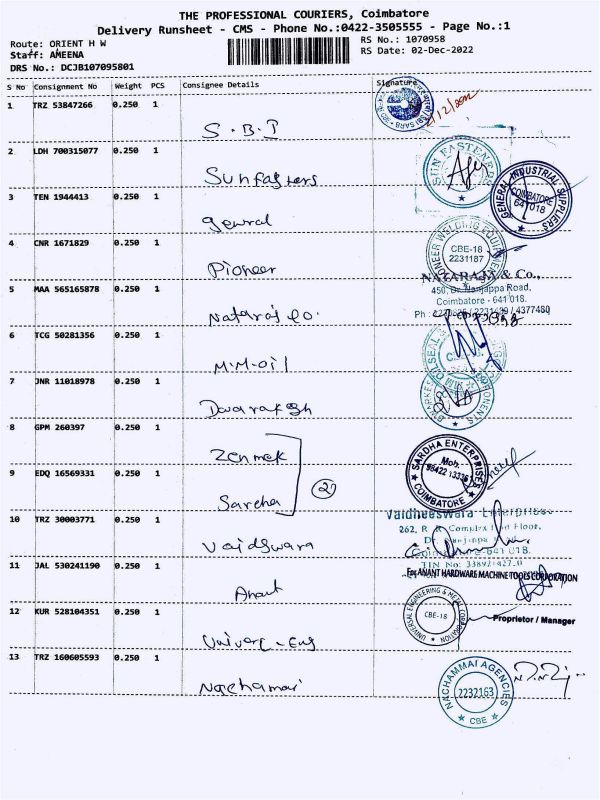 THE PROFESSIONAL COURIERS, Coimbatore
Delivery Runsheet - CMS - Phone No.:0422-3505555 - Page No.:1
Route: ORIENT H W
RS No.: 1070958
Staff: AMEENA
RS Date: 02-Dec-2022
DRS No.: DCJB107095801
S No Consignment No Weight PCS Consignee Details Signature
1 TRZ 53847266 0.250 1
S.B.I
2 LDH 700315077 0.250 1
SUN FASTENER
Sunfasters
3 TEN 1944413 0.250 1
GENERAL INDUSTRIAL SUPPLIERS
COIMBATORE
641 018
general
4 CNR 1671829 0.250 1
PIONEER WELDING EQUIPMENTS
CBE-18
2231187
Pioneer
5 MAA 565165878 0.250 1
NATARAJ & Co.,
450, Dr. Nanjappa Road,
Coimbatore - 641 018.
Nataraj co.
6 TCG 50281356 0.250 1
M.M.oil
7 JNR 11018978 0.250 1
Dwarakesh
8 GPM 260397 0.250 1
Zenmek
SARDHA ENTERPRISES
Mob.
COIMBATORE
9 EDQ 16569331 0.250 1
2
Sardha
10 TRZ 30003771 0.250 1
Vaidheeswara Enterprises
Vaidswara
11 JAL 530241190 0.250 1
For ANANT HARDWARE MACHINE TOOLS CORPORATION
Anant
12 KUR 528104351 0.250 1
UNIVERSAL ENGINEERING & METAL CORPORATION
CBE-18
Proprietor / Manager
Univers-Eng
13 TRZ 160605593 0.250 1
NACHAMMAI AGENCIES
2232163
CBE
Nachamai